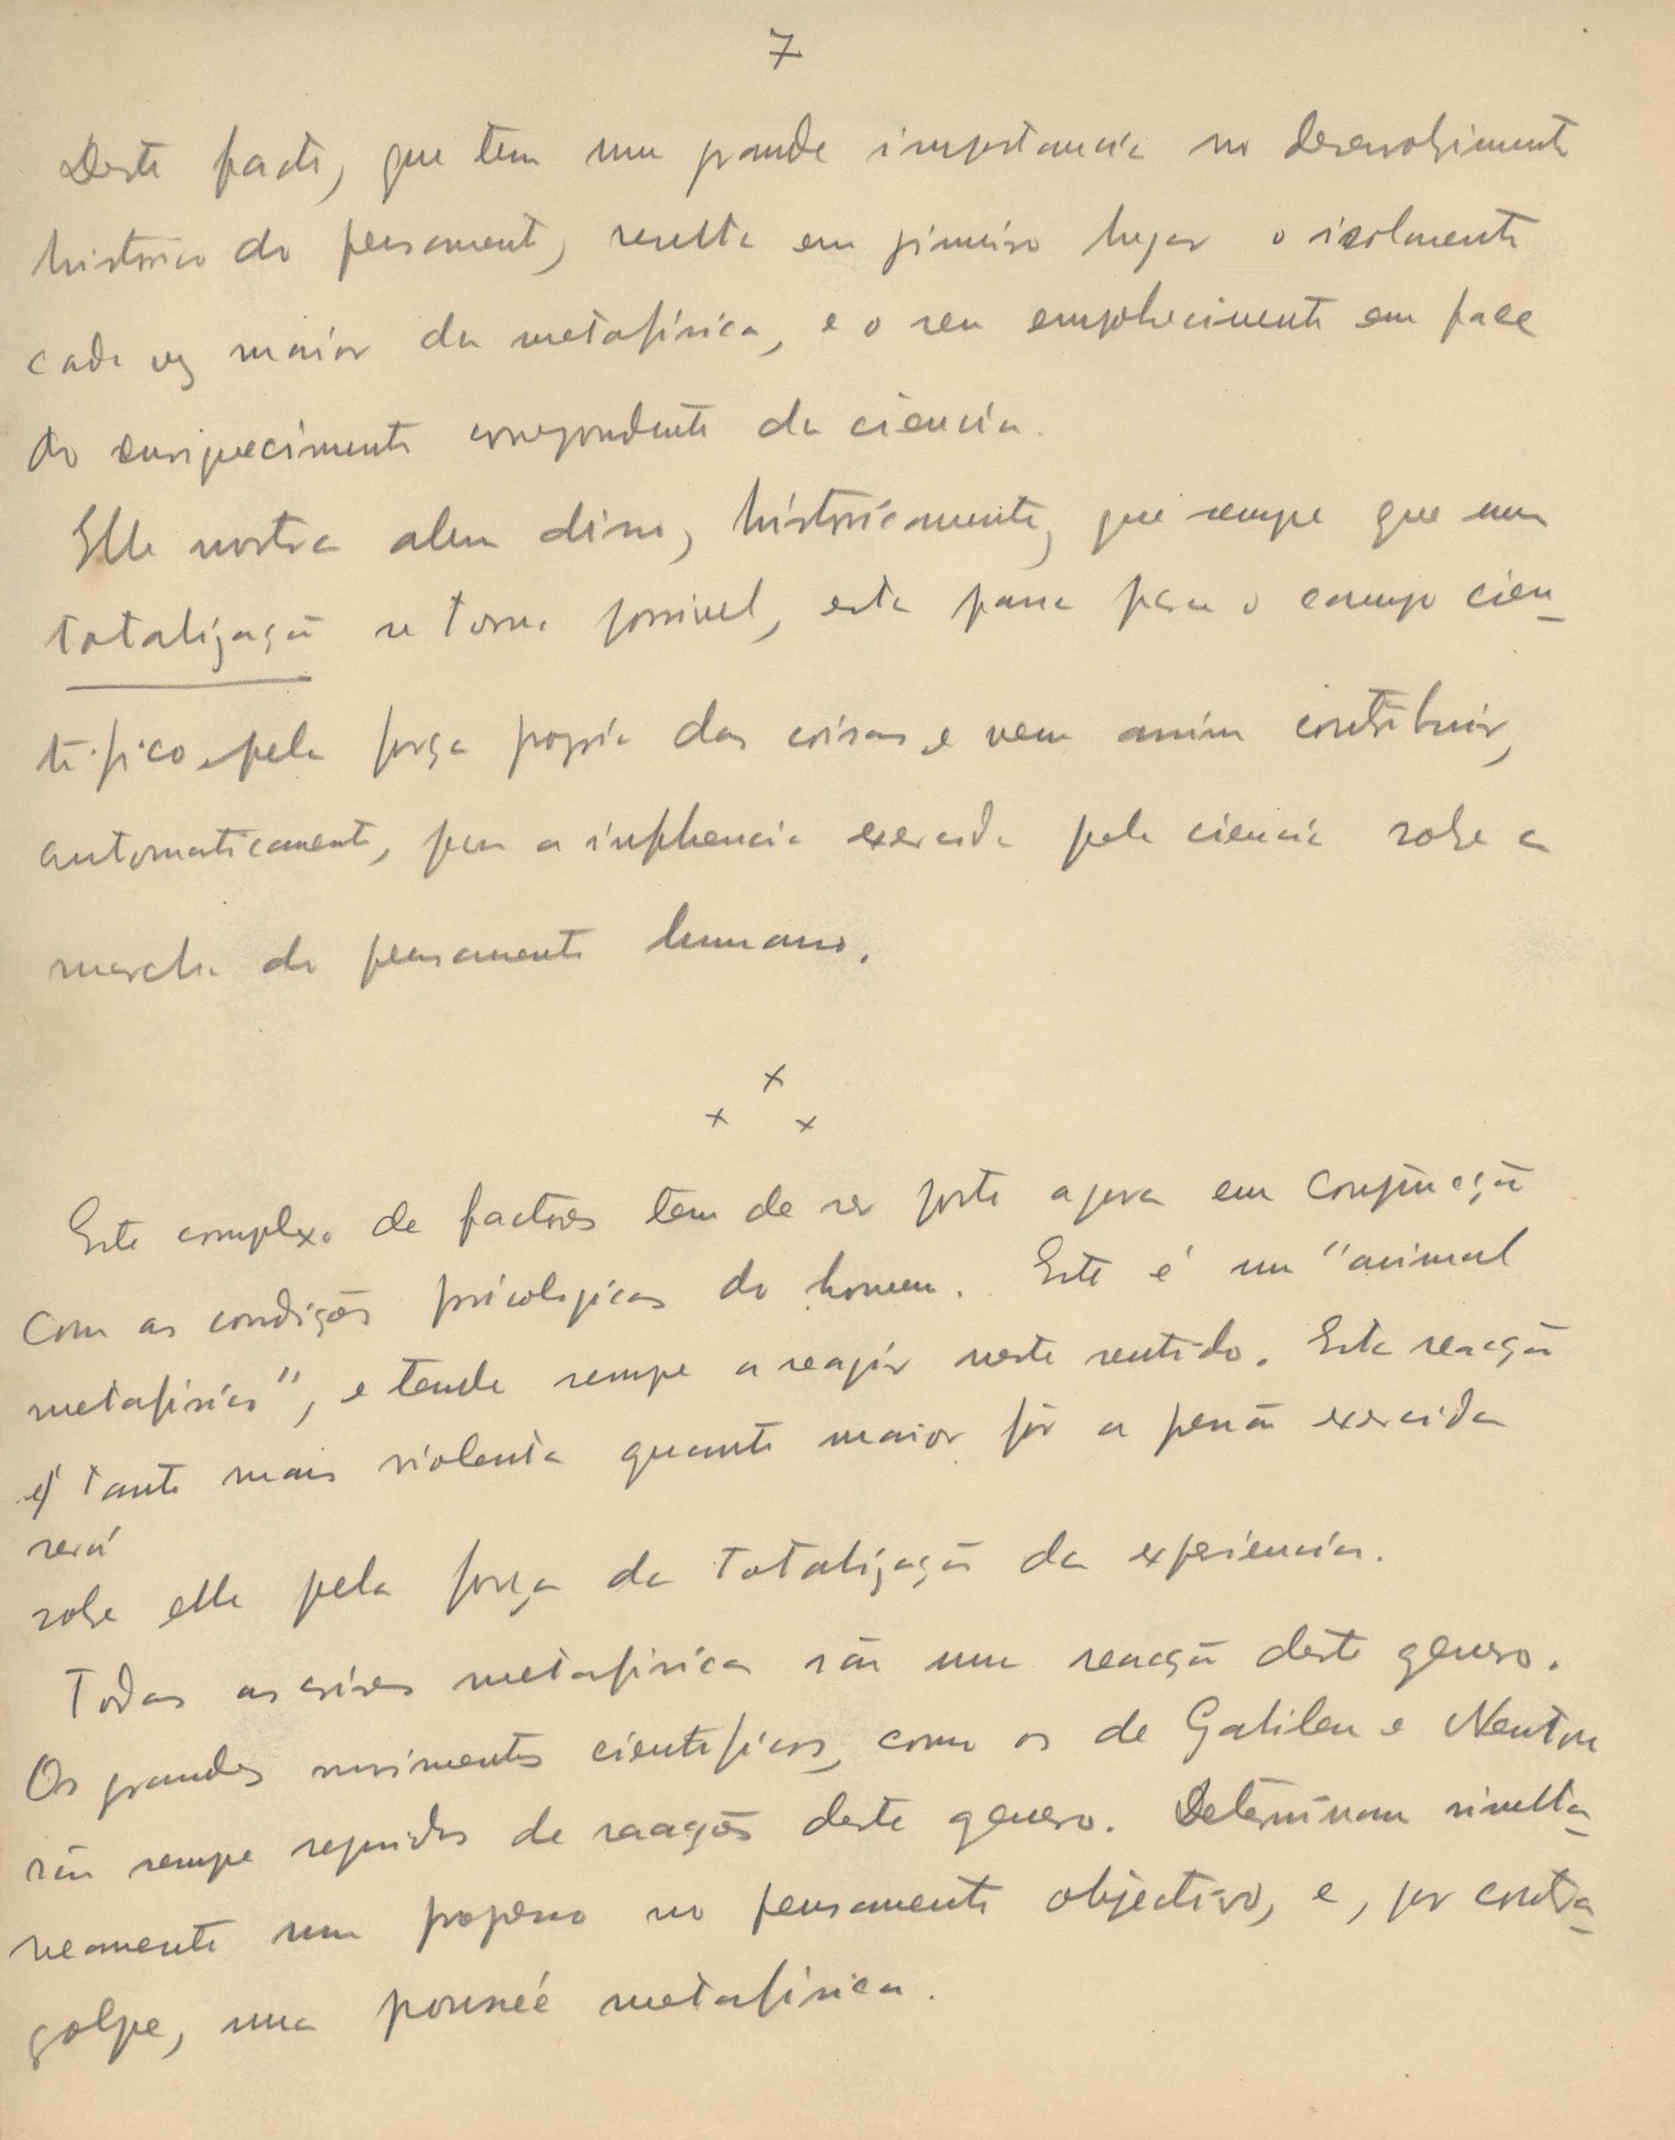 7
Deste facto, que tem uma grande importancia no desenvolvimento
historico do pensamento, resulta em primeiro lugar o isolamento
cada vez maior da metafísica, e o seu empobrecimento em face
do enriquecimento correspondente da ciência.
Elle mostra alem disso, históricamente, que sempre que uma
totalização se torna possivel, esta passa para o campo cien-
tifico pela força propria das coisas e vem assim contribuir,
automaticamente, para a influencia exercida pela ciencia sobre a
marcha do pensamento humano.
x
x x
Este complexo de factores tem de ser posto agora em conjuncção
com as condições psicologicas do homem. Este é um "animal
metafísico", e tende sempre a reagir neste sentido. Esta reacção
é tanto mais violenta quanto maior fôr a pressão exercida
será
sobre elle pela força da totalização da experiencia.
Todas as crises metafísicas são uma reacção deste genero.
Os grandes movimentos cientificos, como os de Galileu e Newton
são sempre seguidos de reacções deste genero. Determinam simulta-
neamente um progresso no pensamento objectivo, e, por contra-
golpe, uma pousseé metafísica.